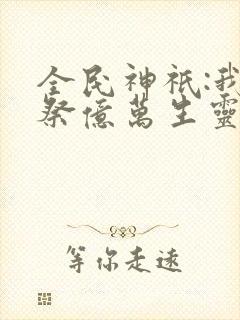 全民神祇:我
祭億萬生靈
等你走遠